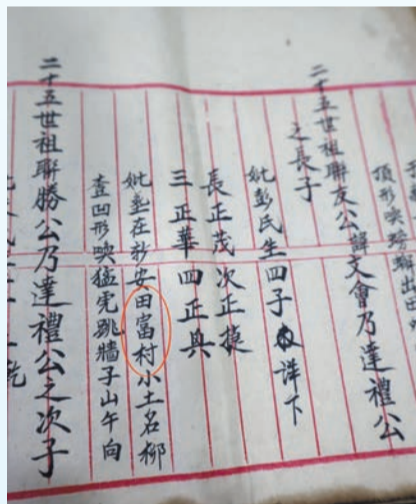 頂形映螃蟹出
二十五世祖聯友公諱文會乃達禮公
之長子
妣彭氏生四子詳下
長正茂次正捷
三正華四正興
妣塟在新安田富村小土名柳
查凹形映猛虎跳牆子山午向
二十五世祖聯勝公乃達禮公之次子